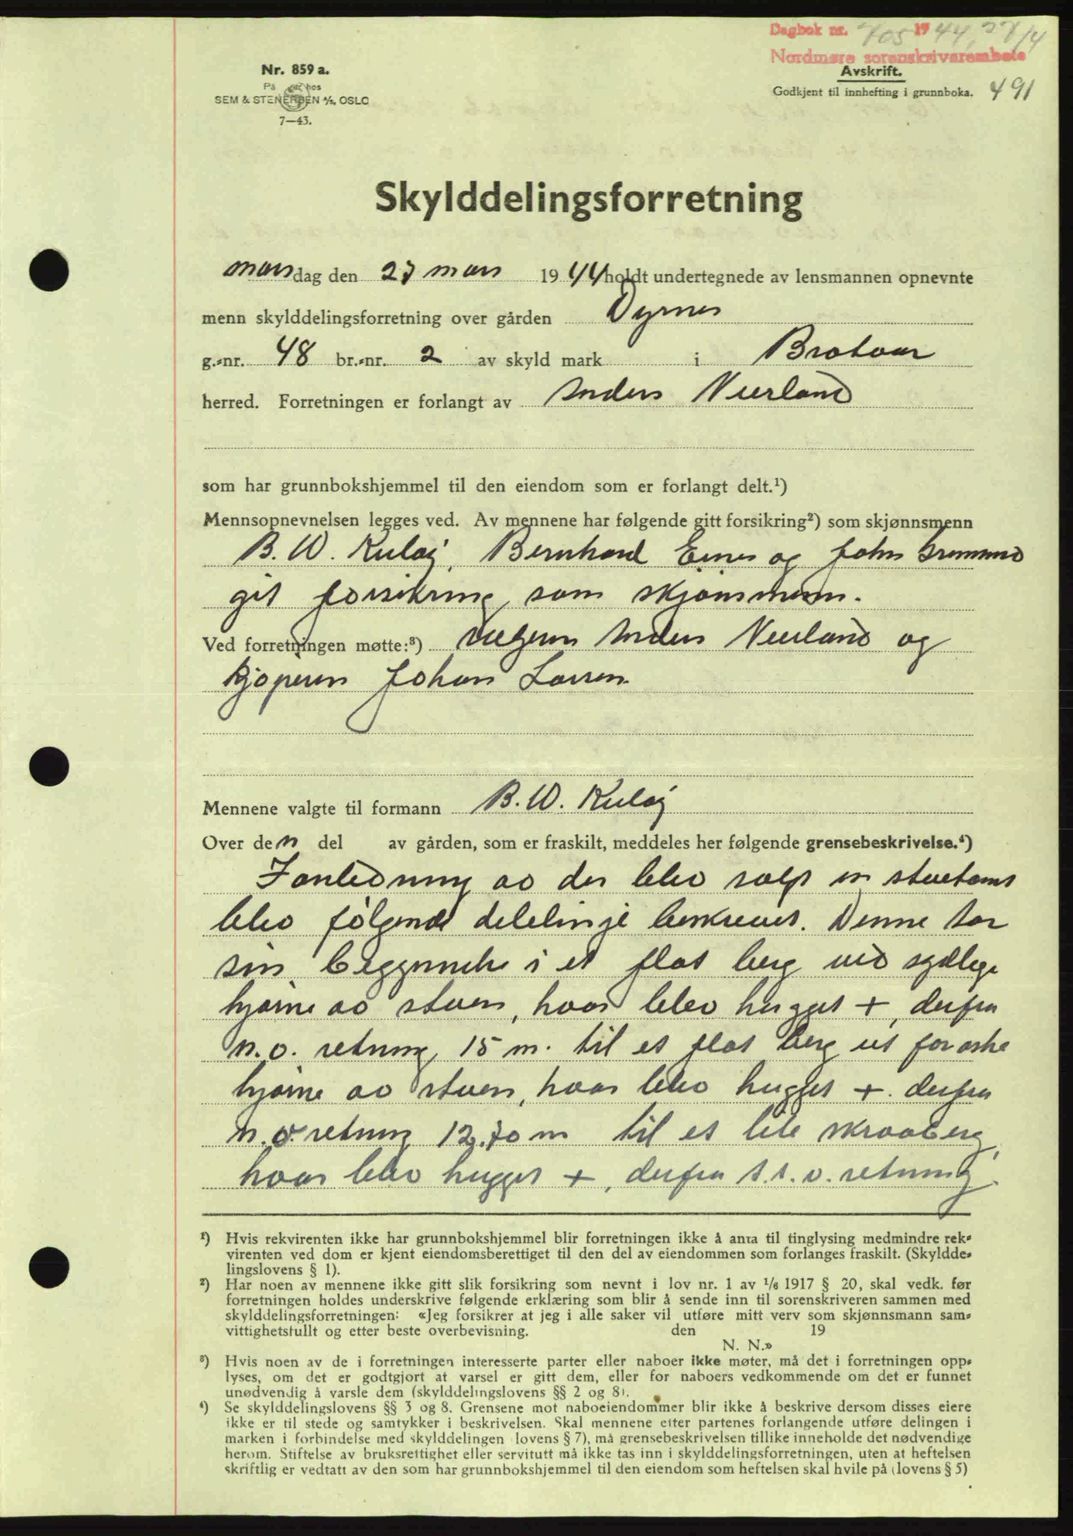 Dagbok nr. 705 1944, 27/4
Nordmøre sorenskriverembete
Nr. 859 a.
På hos
SEM & STENERSEN A/S, OSLO
7—43.
Avskrift.
Godkjent til innhefting i grunnboka. 491
Skylddelingsforretning
mandag den 27 mars 1944 holdt undertegnede av lensmannen opnevnte
menn skylddelingsforretning over gården Dyrnes
g.-nr. 48 br.-nr. 2 av skyld mark i Bratvær
herred. Forretningen er forlangt av Anders Neerland
som har grunnbokshjemmel til den eiendom som er forlangt delt.¹)
Mennsopnevnelsen legges ved. Av mennene har følgende gitt forsikring²) som skjønnsmenn
B. W. Kuløy, Bernhard Eines og John
git forsikring som skjønnsmenn.
Ved forretningen møtte:³) sælgeren Anders Neerland og
kjøperen Johan Larsen
Mennene valgte til formann B. W. Kuløy
Over den del av gården, som er fraskilt, meddeles her følgende grensebeskrivelse.⁴)
I anledning av der blev solgt en stuetomt
blev følgende delelinje beskrevet. Denne tar
sin begynnelse i et flat berg ved sydlige
hjørne av stuen, hvor blev hugget +, derfra
n.o. retning 15 m. til et flat berg ut for østre
hjørne av stuen, hvor blev hugget +. derfra
n.v. retning 12,70 m til et lite skraaberg,
hvor blev hugget +, derfra s.s.v. retning
¹) Hvis rekvirenten ikke har grunnbokshjemmel blir forretningen ikke å anta til tinglysing medmindre rek-
virenten ved dom er kjent eiendomsberettiget til den del av eiendommen som forlanges fraskilt. (Skyldde-
lingslovens § 1).
²) Har noen av mennene ikke gitt slik forsikring som nevnt i lov nr. 1 av 1/6 1917 § 20, skal vedk. før
forretningen holdes underskrive følgende erklæring som blir å sende inn til sorenskriveren sammen med
skylddelingsforretningen: «Jeg forsikrer at jeg i alle saker vil utføre mitt verv som skjønnsmann sam-
vittighetsfullt og etter beste overbevisning. den 19
N. N.»
³) Hvis noen av de i forretningen interesserte parter eller naboer ikke møter, må det i forretningen opp-
lyses, om det er godtgjort at varsel er gitt dem, eller for naboers vedkommende om det er funnet
unødvendig å varsle dem (skylddelingslovens §§ 2 og 8).
⁴) Se skylddelingslovens §§ 3 og 8. Grensene mot naboeiendommer blir ikke å beskrive dersom disses eiere
ikke er til stede og samtykker i beskrivelsen. Skal mennene etter partenes forlangende utføre delingen i
marken i forbindelse med skylddelingen (lovens § 7), må grensebeskrivelsen tillike inneholde det nødvendige
herom. Stiftelse av bruksrettighet eller servitutt må ikke tas inn i skylddelingsforretningen, uten at heftelsen
skriftlig er vedtatt av den som har grunnbokshjemmel til den eiendom som heftelsen skal hvile på (lovens § 5)